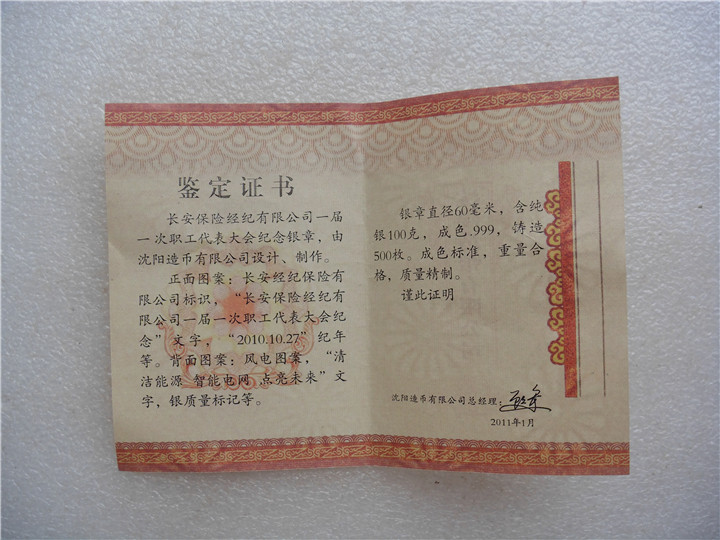 鉴定证书
长安保险经纪有限公司一届
一次职工代表大会纪念银章，由
沈阳造币有限公司设计、制作。
正面图案：长安经纪保险有
限公司标识，“长安保险经纪有
限公司一届一次职工代表大会纪
念”文字，“2010.10.27”纪年
等。背面图案：风电图案，“清
洁能源 智能电网 点亮未来”文
字，银质量标记等。
银章直径60毫米，含纯
银100克，成色.999，铸造
500枚。成色标准，重量合
格，质量精制。
谨此证明
沈阳造币有限公司总经理：
2011年1月